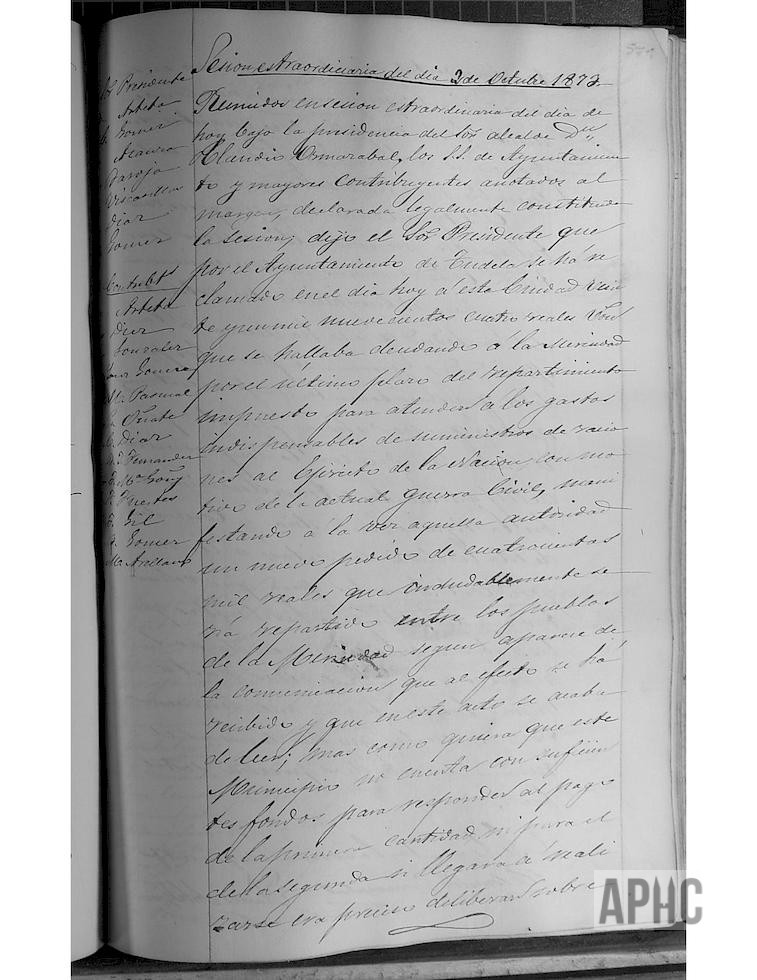 Sesion estraordinaria del dia 2 de Octubre 1873
Sr Presidente
Arteta
Gomez
Azanza
Baroja
Diaz
Gomez
Contribts
Arteta
Diez
Gonzalez
Gomez
M. Pascual
Oñate
Diaz
Fernandez
Ma Goñy
Fuertes
Gil
Gomez
M. Arellano
Reunidos en sesion estraordinaria del dia de
hoy bajo la presidencia del Sor alcalde Dn
Claudio Ormazabal, los S.S. de Ayuntamien
to y mayores Contribuyentes anotados al
margen, declarada legalmente constituida
la sesion; dijo el Sor Presidente que
por el Ayuntamiento de Tudela se há re
clamado en el dia hoy á esta Ciudad vein
te y un mil nuevecientos cuatro reales Von
que se hallaba deudando á la Merindad
por el ultimo plazo del repartimiento
impuesto para atender á los gastos
indispensables de suministros de racio
nes al Ejército de la Nacion con mo
tivo de la actual guerra Civil, mani
festando á la vez aquella autoridad
un nuevo pedido de cuatrocientos
mil reales que indudablemente se
rá repartido entre los pueblos
de la Merindad segun aparece de
la comunicacion que al efecto se há
recibido y que en este acto se acaba
de leer; mas como quiera que este
Municipio no cuenta con suficien
tes fondos para responder al pago
de la primera cantidad ni para el
de la segunda si llegara á reali
zarse era preciso deliberar sobre
APHC